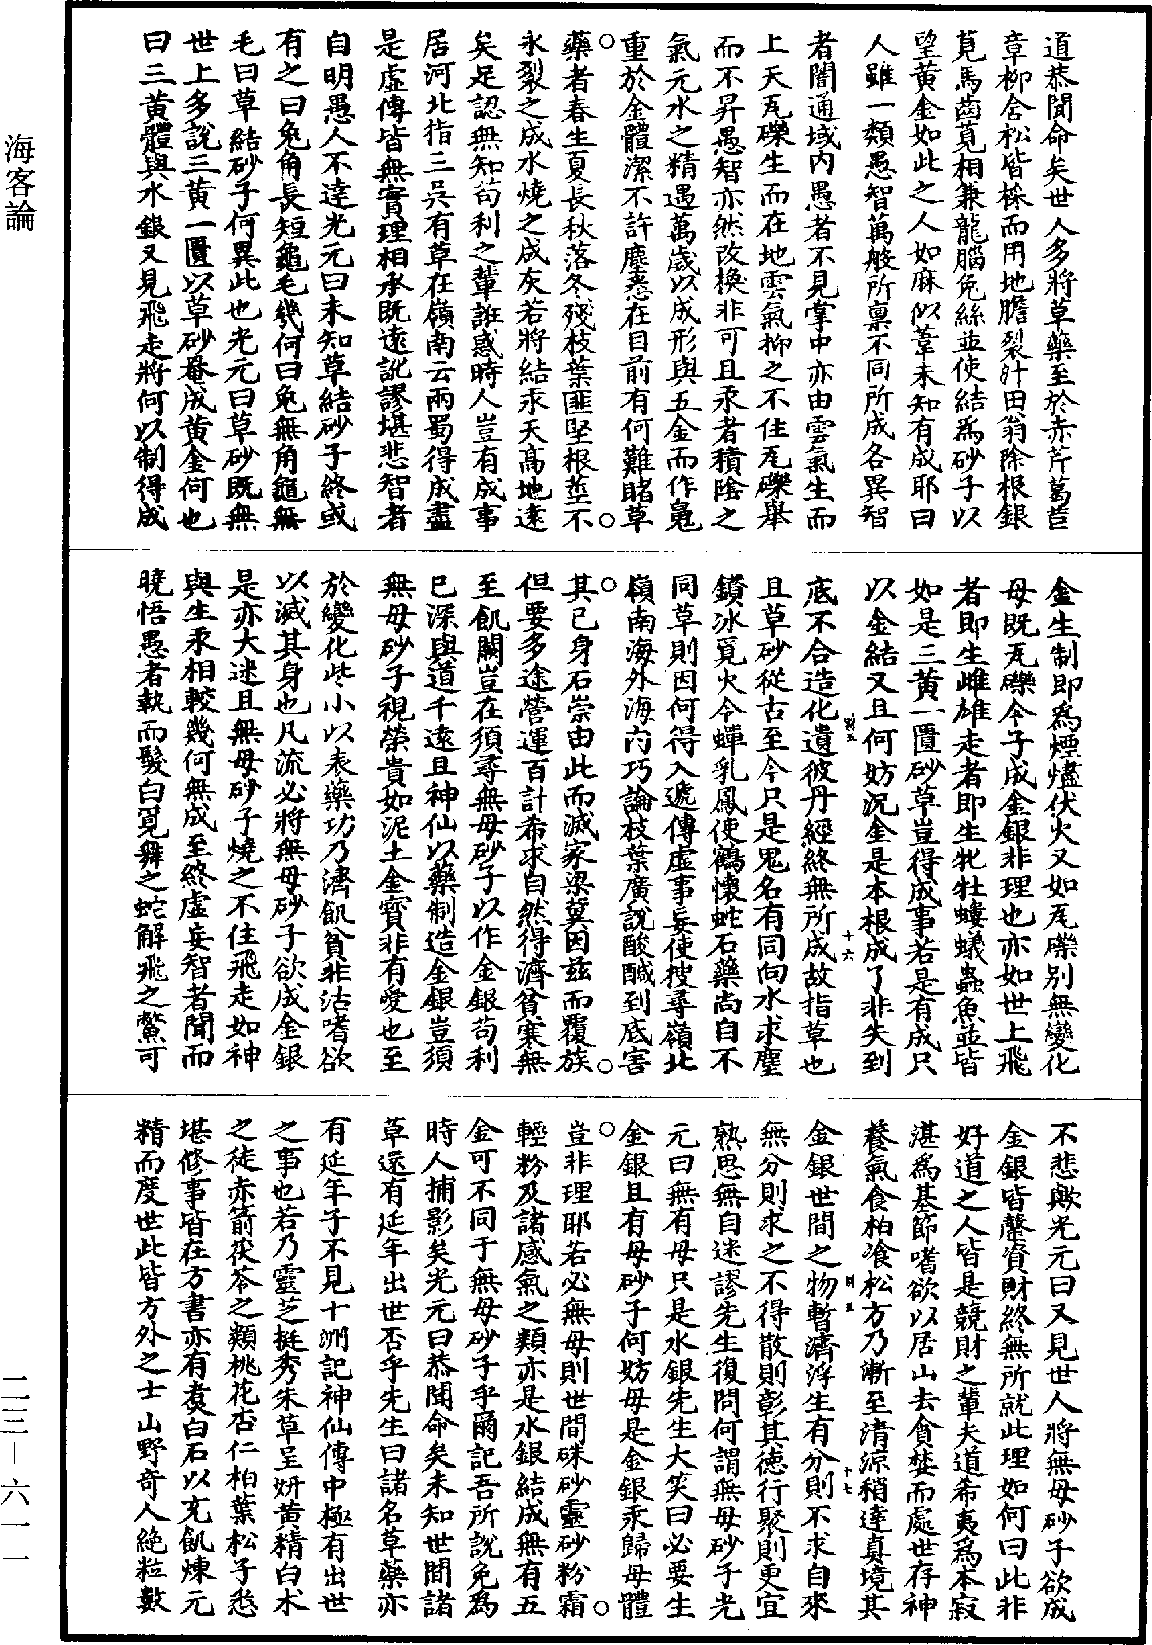 道恭聞命矣世人多將草藥至於赤芹葛苣
章柳含松皆採而用地膽裂汁田翁除根銀
莧馬齒莧相兼龍腦兔絲並使結爲砂子以
望黃金如此之人如麻似葦未知有成耶曰
人雖一類愚智萬般所稟不同所成各異智
者闇通域內愚者不見掌中亦由雲氣生而
上天瓦礫生而在地雲氣抑之不住瓦礫舉
而不昇愚智亦然改換非可且汞者積陰之
氣元水之精遇萬歲以成形與五金而作䰟
重於金體潔不許塵恚在目前有何難睹草
藥者春生夏長秋落冬殘枝葉匪堅根莖不
永裂之成水燒之成灰若將結汞天高地遠
矣足認無知苟利之輩誑惑時人豈有成事
居河北指三吳有草在嶺南云兩蜀得成盡
是虛傳皆無實理相承既遠訛謬堪悲智者
自明愚人不達光元曰未知草結砂子終或
有之曰兔角長短龜毛幾何曰兔無角龜無
毛曰草結砂子何異此也光元曰草砂既無
世上多說三黃一匱以草砂養成黃金何也
曰三黃體與水銀又見飛走將何以制得成
金生制即爲煙燼伏火又如瓦礫別無變化
母既瓦礫今子成金銀非理也亦如世上飛
者即生雌雄走者即生牝牡螻蟻蟲魚並皆
如是三黃一匱砂草豈得成事若是有成只
以金結又且何妨況金是本根成了非失到
底不合造化遺彼丹經終無所成故指草也
且草砂從古至今只是鬼名有同向水求塵
鑽冰覓火令蟬乳鳳使鶴懷蛇石藥尚自不
同草則因何得入遞傳虛事妄使搜尋嶺北
嶺南海外海內巧論枝葉廣說酸醎到底害
其已身石崇由此而滅家梁冀因玆而覆族
但要多途營運百計希求自然得濟貧寒無
至飢闕豈在須尋無母砂子以作金銀苟利
已深與道千遠且神仙以藥制造金銀豈須
無母砂子視榮貴如泥土金寶非有愛也至
於變化些小以表藥功乃濟飢貧非沽嗜欲
以滅其身也凡流必將無母砂子欲成金銀
是亦大迷且無母砂子燒之不住飛走如神
與生汞相較幾何無成至終虛妄智者聞而
曉悟愚者執而髮白覓舞之蛇解飛之鱉可
不悲歟光元曰又見世人將無母砂子欲成
金銀皆罄資財終無所就此理如何曰此非
好道之人皆是競財之輩夫道希夷爲本寂
湛爲基節嗜欲以居山去貪婪而處世存神
養氣食柏飡松方乃漸至清源稍達真境其
金銀世間之物暫濟浮生有分則不求自來
無分則求之不得散則彰其德行聚則更宜
熟思無自迷謬先生復問何謂無母砂子光
元曰無有母只是水銀先生大笑曰必要生
金銀且有母砂子何妨母是金銀汞歸母體
豈非理耶若必無母則世間硃砂靈砂粉霜
輕粉及諸感氣之類亦是水銀結成無有五
金可不同于無母砂子乎爾記吾所說免爲
時人捕影矣光元曰恭聞命矣未知世間諸
草還有延年出世否乎先生曰諸名草藥亦
有延年子不見十洲記神仙傳中極有出世
之事也若乃靈芝挺秀朱草呈妍黃精白朮
之徒赤箭茯苓之類桃花杏仁柏葉松子悉
堪修事皆在方書亦有煑白石以充飢煉元
精而度世此皆方外之士山野奇人絶粒數
海客論
二三—六一一
十六
十七